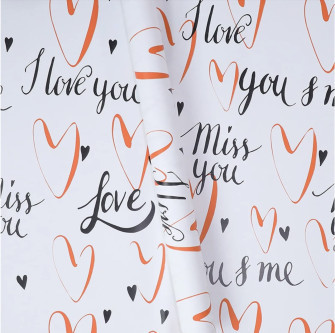 I love you
I love
you & me
Miss
you
Miss
you
Love
you & me